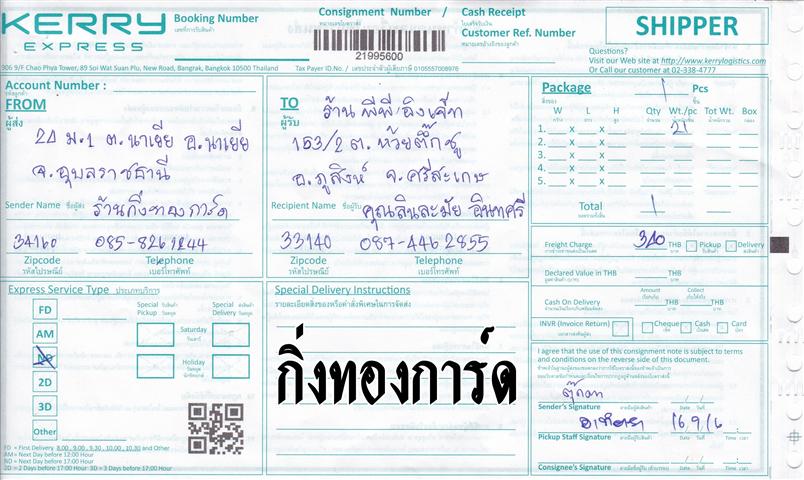 KERRY EXPRESS
Booking Number
เลขที่การรับสินค้า
Consignment Number /
หมายเลขใบตราส่ง
21995600
Cash Receipt
ใบเสร็จรับเงิน
Customer Ref. Number
หมายเลขอ้างอิงของลูกค้า
SHIPPER
Questions?
Visit our Web site at http://www.kerrylogistics.com
Or Call our customer at 02-338-4777
906 9/F Chao Phya Tower, 89 Soi Wat Suan Plu, New Road, Bangrak, Bangkok 10500 Thailand
Tax Payer ID.No. / เลขประจำตัวผู้เสียภาษี 0105557008976
Account Number :
รหัสลูกค้า
FROM
ผู้ส่ง
20 ม.1 ต.นาเยีย อ.นาเยีย
จ.อุบลราชธานี
Sender Name ชื่อผู้ส่ง ร้านกิ่งทองการ์ด
34160 085-8261244
Zipcode Telephone
รหัสไปรษณีย์ เบอร์โทรศัพท์
TO
ผู้รับ
ร้าน พีพี อิงเจ็ท
153/2 ต. ห้วยติ๊กชู
อ.ภูสิงห์ จ.ศรีสะเกษ
Recipient Name ชื่อผู้รับ คุณสินละมัย อินทศรี
33140 087-4462855
Zipcode Telephone
รหัสไปรษณีย์ เบอร์โทรศัพท์
Package 1 Pcs
W L H Qty Wt./pc Tot Wt. Box
1. X X 21
2. X X
3. X X
4. X X
5. X X
Total 1
Freight Charge 340 THB Pickup Delivery
Declared Value in THB THB
Amount Collect
Cash On Delivery THB THB
INVR (Invoice Return) Cheque Cash Card
Express Service Type ประเภทบริการ
FD
AM
ND
2D
3D
Other
Special Pickup
Special Delivery
Saturday
วันเสาร์
Holiday
วันหยุด
FD = First Delivery 8.00, 9.00, 9.30, 10.00, 10.30 and Other
AM = Next Day before 12:00 Hour
ND = Next Day before 17:00 Hour
2D = 2 Days before 17:00 Hour 3D = 3 Days before 17:00 Hour
Special Delivery Instructions
รายละเอียดสิ่งของหรือคำสั่งพิเศษในการจัดส่ง
กิ่งทองการ์ด
I agree that the use of this consignment note is subject to terms
and conditions on the reverse side of this document.
ตุ๊กตา
Sender's Signature ลายมือชื่อผู้ส่งสินค้า Date วันที่
16/9/16
Pickup Staff Signature Date วันที่ Time เวลา
Consignee's Signature Date วันที่ Time เวลา